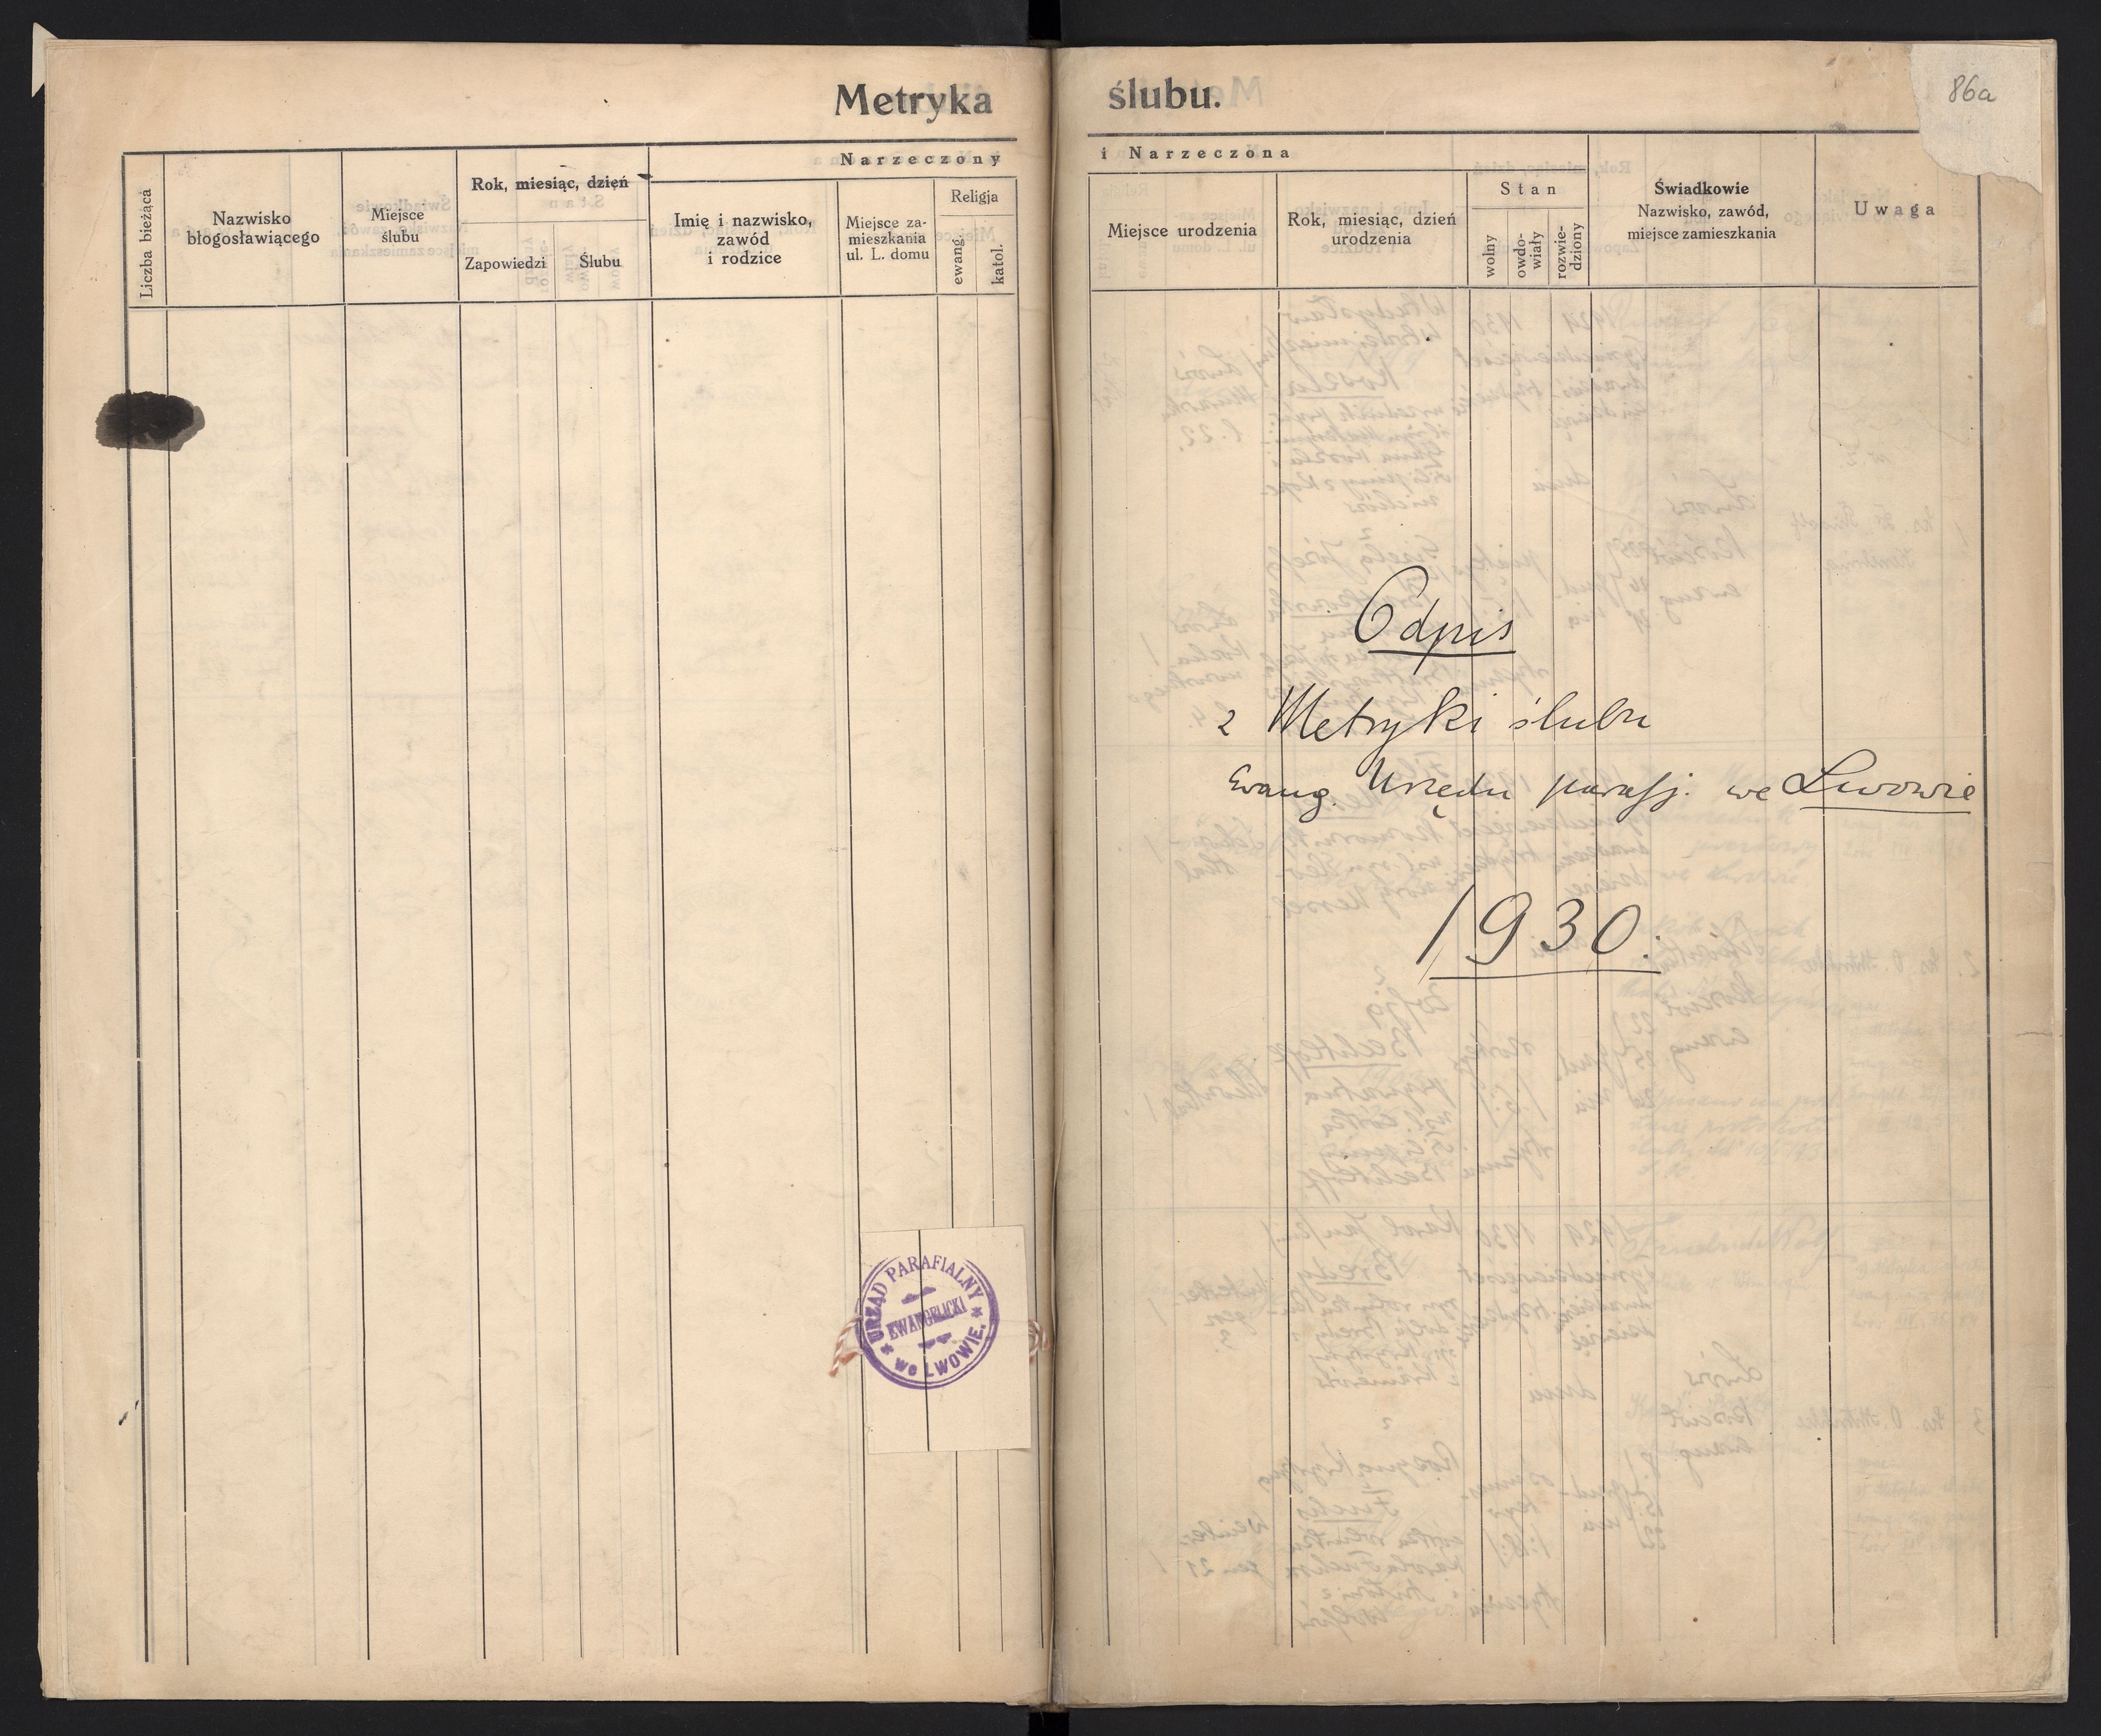 Metryka ślubu.
86a
Narzeczony i Narzeczona
Liczba bieżąca
Nazwisko
błogosławiącego
Miejsce
ślubu
Rok, miesiąc, dzień
Zapowiedzi
Ślubu
Imię i nazwisko,
zawód
i rodzice
Miejsce za-
mieszkania
ul. L. domu
Religja
ewang.
katol.
Miejsce urodzenia
Rok, miesiąc, dzień
urodzenia
Stan
wolny
owdo-
wiały
rozwie-
dziony
Świadkowie
Nazwisko, zawód,
miejsce zamieszkania
Uwaga
Odpis
z Metryki ślubu
Ewang. Urzędu parafj. we Lwowie
1930.
URZĄD PARAFIALNY
EWANGELICKI
we LWOWIE.